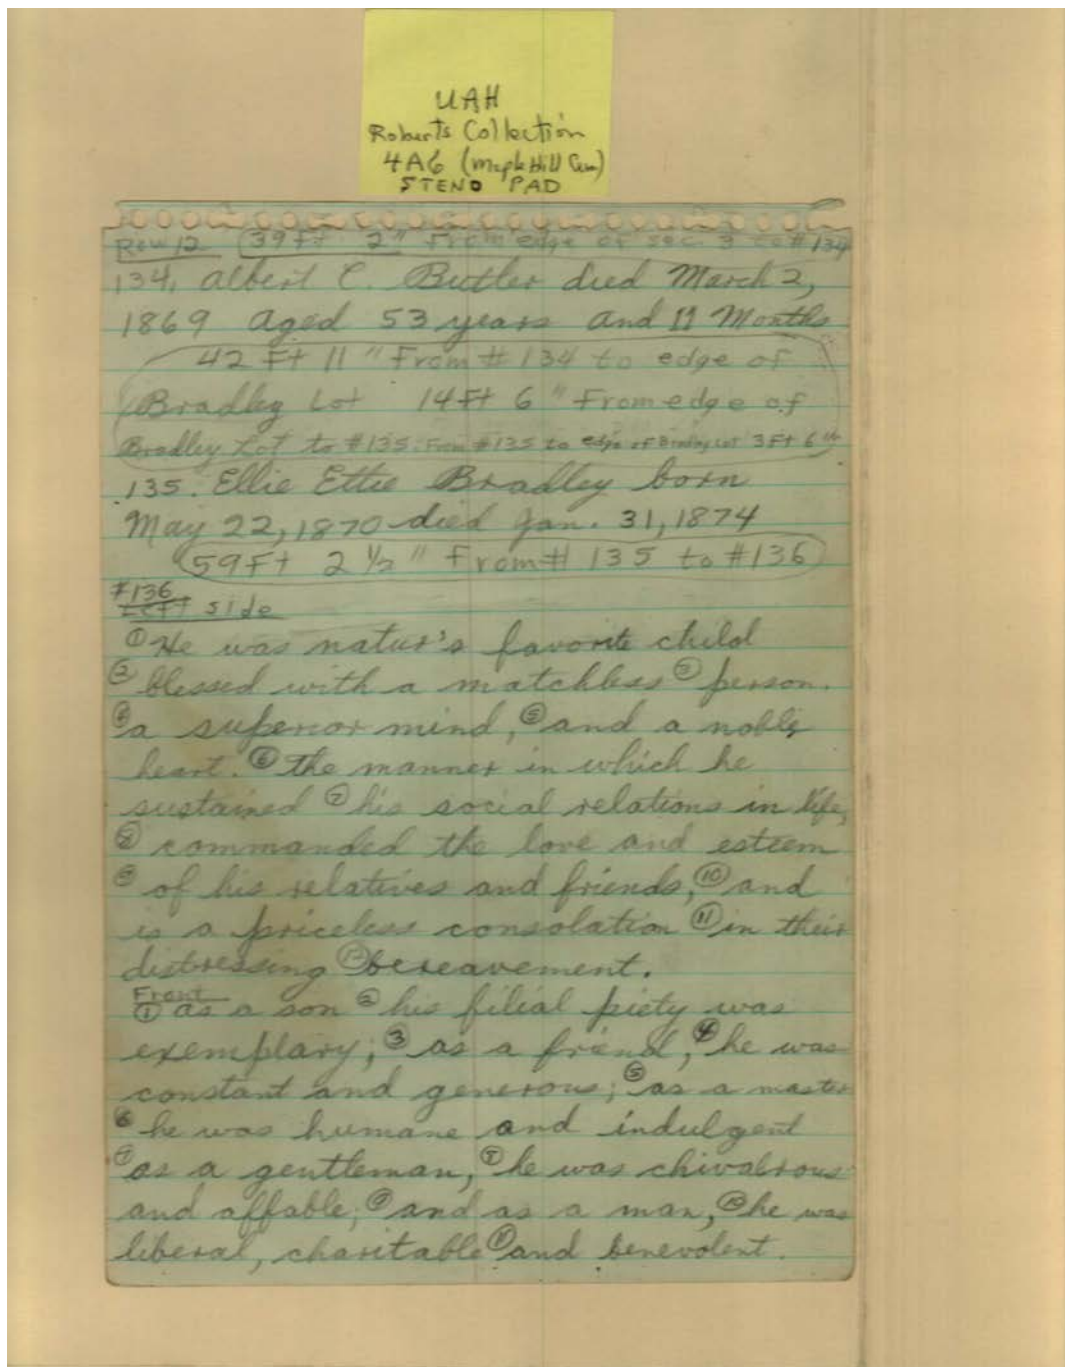 UAH
Roberts Collection
4A6 (Maple Hill Cem)
STENO PAD
Row 12 39 Ft 2" From edge of sec 3 to #134
134. Albert C. Butler died March 2,
1869 aged 53 years and 11 Months
42 Ft 11" From #134 to edge of
Bradley Lot 14 Ft 6" From edge of
Bradley Lot to #135. From #135 to edge of Bradley Lot 3 Ft 6 in
135. Ellie Ettie Bradley born
May 22, 1870 died Jan. 31, 1874
59 Ft 2 1/2" From #135 to #136
#136
Left side
① He was natur's favorite child
② blessed with a matchless ③ person.
④ a superior mind, ⑤ and a noble
heart. ⑥ the manner in which he
sustained ⑦ his social relations in life,
⑧ commanded the love and esteem
⑨ of his relatives and friends, ⑩ and
is a priceless consolation ⑪ in their
distressing ⑫ bereavement.
Front
① as a son ② his filial piety was
exemplary; ③ as a friend, ④ he was
constant and generous; ⑤ as a master
⑥ he was humane and indulgent
⑦ as a gentleman, ⑧ he was chivalrous
and affable; ⑨ and as a man, ⑩ he was
liberal, charitable ⑪ and benevolent.